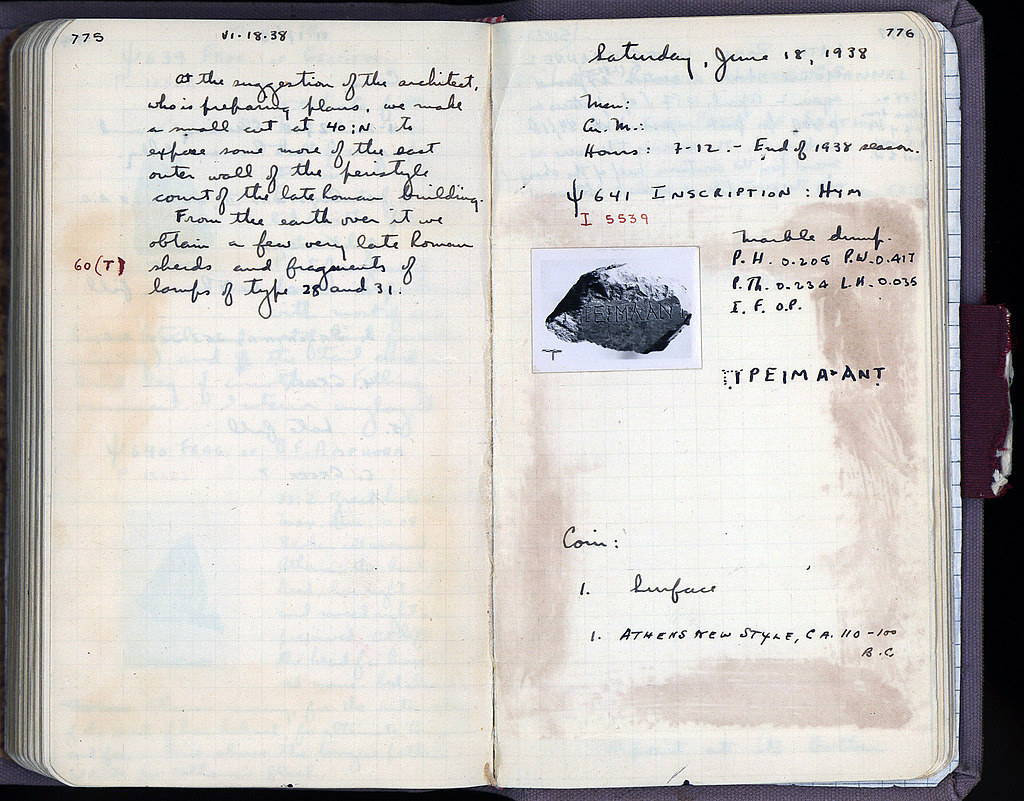 775
VI-18-38
At the suggestion of the architect,
who is preparing plans, we make
a small cut at 40:N to
expose some more of the east
outer wall of the peristyle
court of the late Roman building.
From the earth over it we
obtain a few very late Roman
60(T) sherds and fragments of
lamps of type 28 and 31.
776
Saturday, June 18, 1938
Men:
Ca. M.:
Hours: 7-12.- End of 1938 season.
Ψ 641 INSCRIPTION: HYM
I 5539
Marble dump.
P. H. 0.208 P.W. 0.417
P.Th. 0.234 L.H. 0.035
I. F. O.P.
ΡΕΙΜΑ·ΑΝΤ
Coin:
1. Surface
1. ATHENS NEW STYLE, CA. 110-100
B.C.